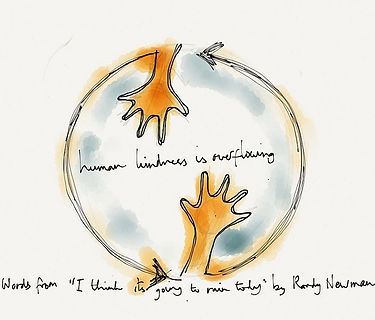 human kindness is overflowing
Words from "I think its going to rain today" by Randy Newman